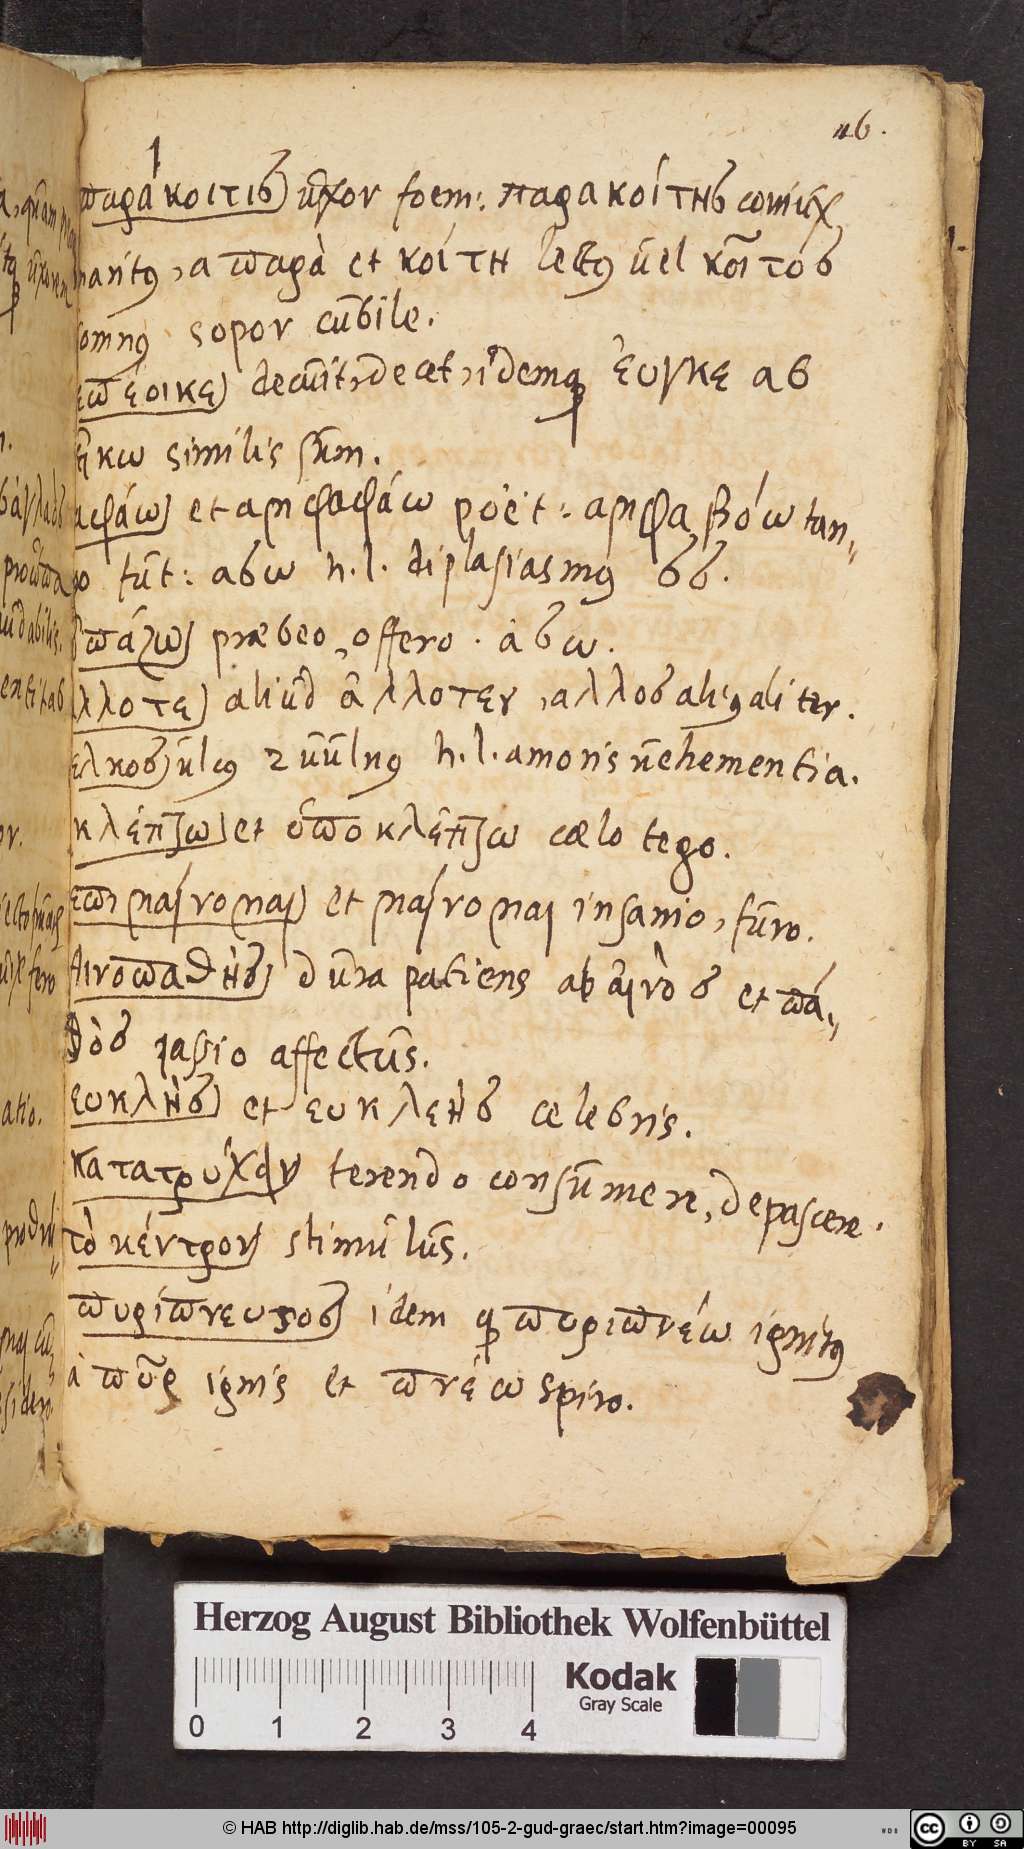 46.
παράκοιτις) uxor foem: παρακοίτης coniux,
maritus, a παρὰ et κοίτη lectus uel κοῖτος
somnus sopor cubile.
ἐπέοικε) decuit, decet, idemq ἔυγκε ab
εἴκω similis sum.
αφάω) et αμφαφάω poët: αμφαβόω tan-
go fut: αβω h.l. diplasiasmus ββ.
οπάζω) præbeo, offero. άβω.
άλλοτε) aliud ἄλλοτεν, αλλος alius aliter.
ελκος) ulcus 2 uulnus h.l. amoris uehementia.
κλέπτω) et ὑποκλέπτω cælo tego.
επιμαίνομαι) et μαίνομαι insanio, furo.
Αινοπαθὴς) dura patiens ab αἰνὸς et πά-
θὸς passio affectus.
ευκλὴς) et ευκλεὴς celebris.
κατατρύχειν terendo consumere, depascere.
τὸ κέντρον) stimulus.
πυρίπνευστος) idem q πυριπνέω ignitus
ἀ πῦρ ignis et πνέω spiro.
Herzog August Bibliothek Wolfenbüttel
Kodak
Gray Scale
0 1 2 3 4
© HAB http://diglib.hab.de/mss/105-2-gud-graec/start.htm?image=00095
WDB
cc BY SA